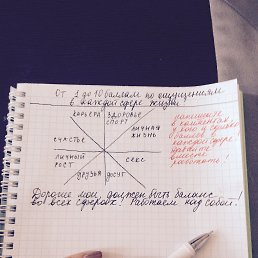 От 1 до 10 баллам по ощущениям
в каждой сфере жизни
карьера
здоровье
спорт
личная
жизнь
секс
досуг
друзья
личный
рост
счастье
напишите
в комментах
у кого в сумме
баллов в
каждой сфере!
давайте
вместе
работать!
Дорогие мои, должен быть баланс
во всех сферах! Работаем над собой!